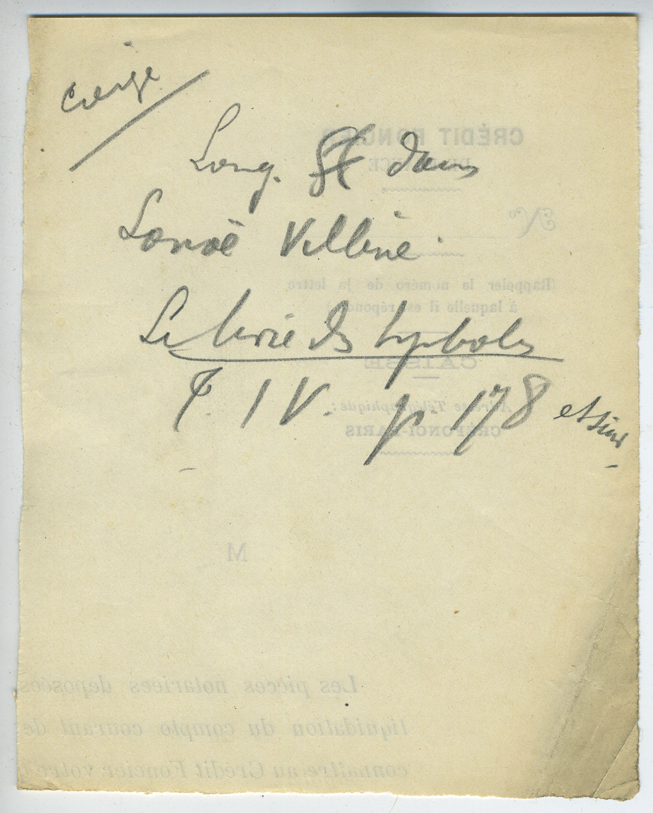 cierge
Long. dans
Lanoë Villène.
Le livre des Symboles
T. IV. p. 178 et suiv
CRÉDIT FONCIER
DE FRANCE
No
Rappeler le numéro de la lettre
à laquelle il est répondu
CAISSE
Adresse Télégraphique:
CRÉFONCI-PARIS
M
Les pièces notariées déposées
liquidation du compte courant de
connaître au Crédit Foncier votre